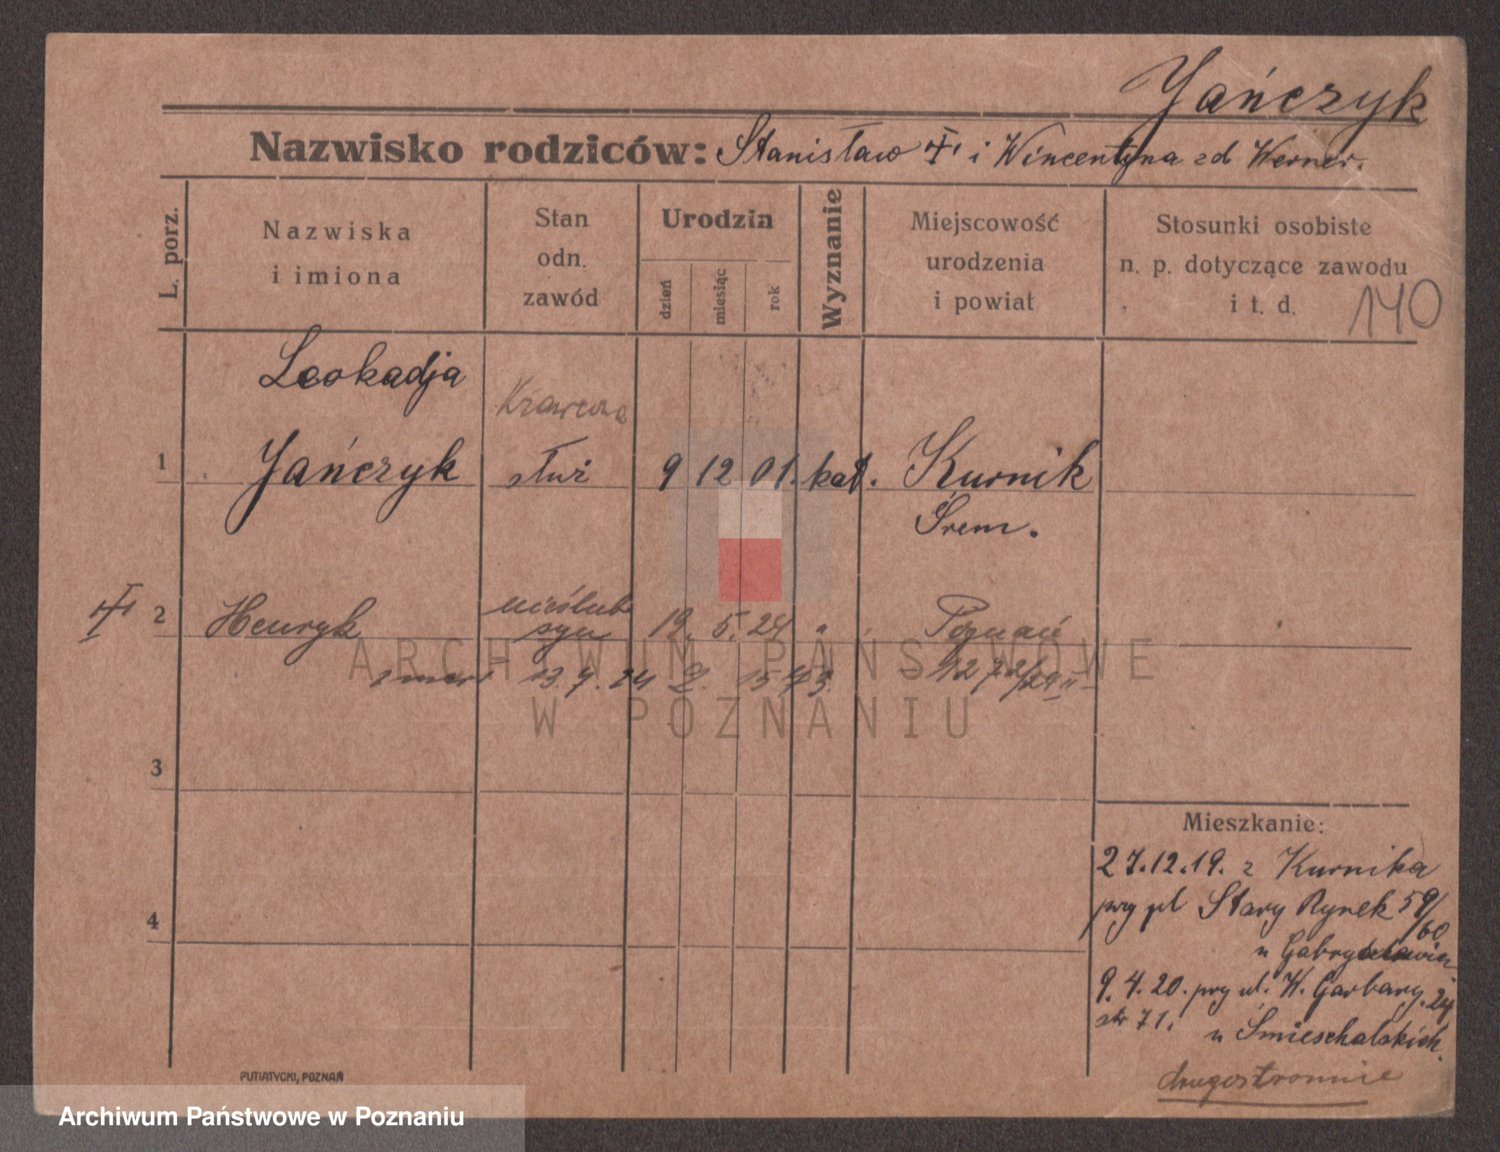 Jańczyk
Nazwisko rodziców: Stanisław i Wincentyna zd Werner.
L. porz.
Nazwiska
i imiona
Stan
odn.
zawód
Urodzin
dzień
miesiąc
rok
Wyznanie
Miejscowość
urodzenia
i powiat
Stosunki osobiste
n. p. dotyczące zawodu
i t. d.
140
Leokadja
1 Jańczyk służ 9 12 01. kat. Kurnik
Śrem.
2 Henryk nieślub 19. 5. 24 " Poznań
syn
zmarł 13.7.24
3
4
ARCHIWUM PAŃSTWOWE
W POZNANIU
Mieszkanie:
27.12.19. z Kurnika
przy pl Stary Rynek 59/60
u
9.4.20. przy ul. W. Garbary. 24
str 71. u Śmieschalskich.
drugostronnie
PUTIATYCKI, POZNAŃ
Archiwum Państwowe w Poznaniu